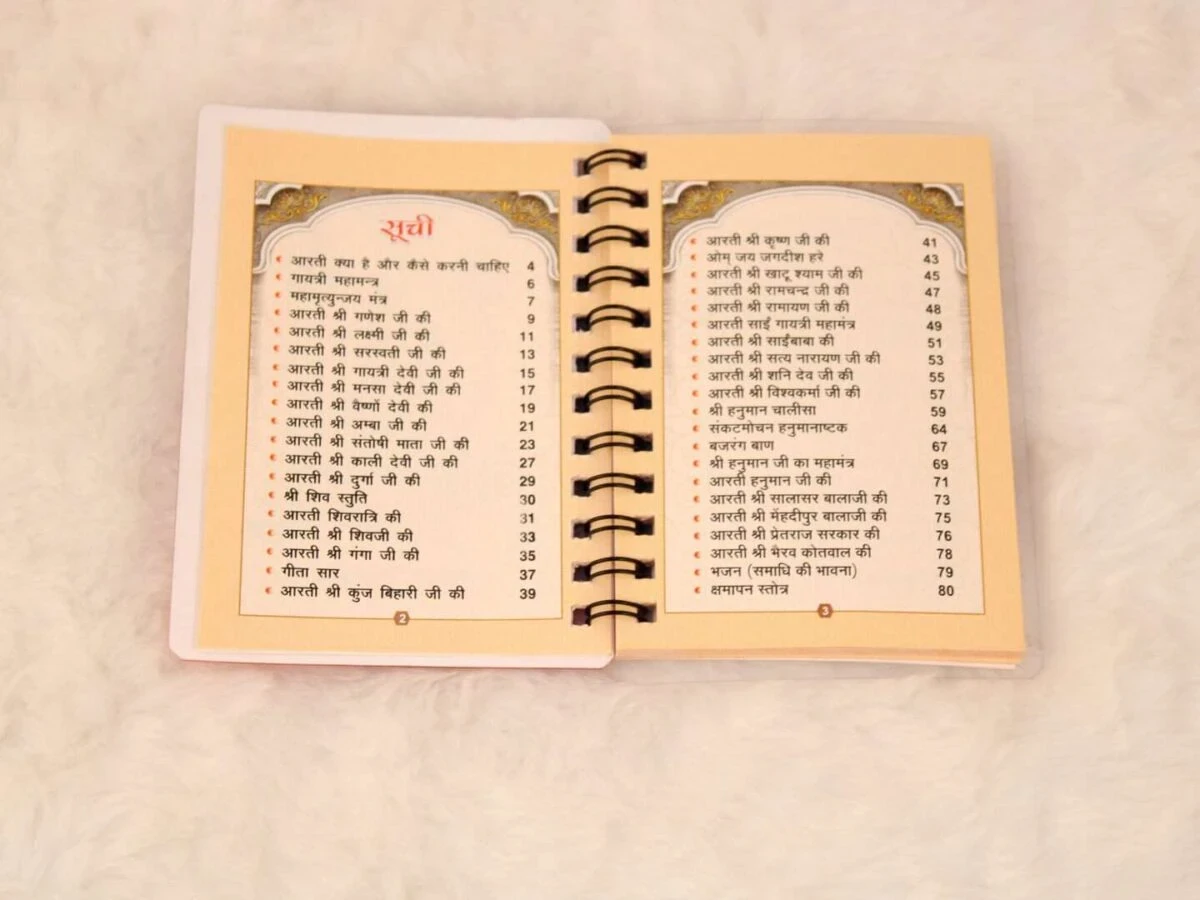 सूची
आरती क्या है और कैसे करनी चाहिए 4
गायत्री महामन्त्र 6
महामृत्युन्जय मंत्र 7
आरती श्री गणेश जी की 9
आरती श्री लक्ष्मी जी की 11
आरती श्री सरस्वती जी की 13
आरती श्री गायत्री देवी जी की 15
आरती श्री मनसा देवी जी की 17
आरती श्री वैष्णों देवी की 19
आरती श्री अम्बा जी की 21
आरती श्री संतोषी माता जी की 23
आरती श्री काली देवी जी की 27
आरती श्री दुर्गा जी की 29
श्री शिव स्तुति 30
आरती शिवरात्रि की 31
आरती श्री शिवजी की 33
आरती श्री गंगा जी की 35
गीता सार 37
आरती श्री कुंज बिहारी जी की 39
2
आरती श्री कृष्ण जी की 41
ओम् जय जगदीश हरे 43
आरती श्री खाटू श्याम जी की 45
आरती श्री रामचन्द्र जी की 47
आरती श्री रामायण जी की 48
आरती साईं गायत्री महामंत्र 49
आरती श्री साईंबाबा की 51
आरती श्री सत्य नारायण जी की 53
आरती श्री शनि देव जी की 55
आरती श्री विश्वकर्मा जी की 57
श्री हनुमान चालीसा 59
संकटमोचन हनुमानाष्टक 64
बजरंग बाण 67
श्री हनुमान जी का महामंत्र 69
आरती हनुमान जी की 71
आरती श्री सालासर बालाजी की 73
आरती श्री मेंहदीपुर बालाजी की 75
आरती श्री प्रेतराज सरकार की 76
आरती श्री भैरव कोतवाल की 78
भजन (समाधि की भावना) 79
क्षमापन स्तोत्र 80
3